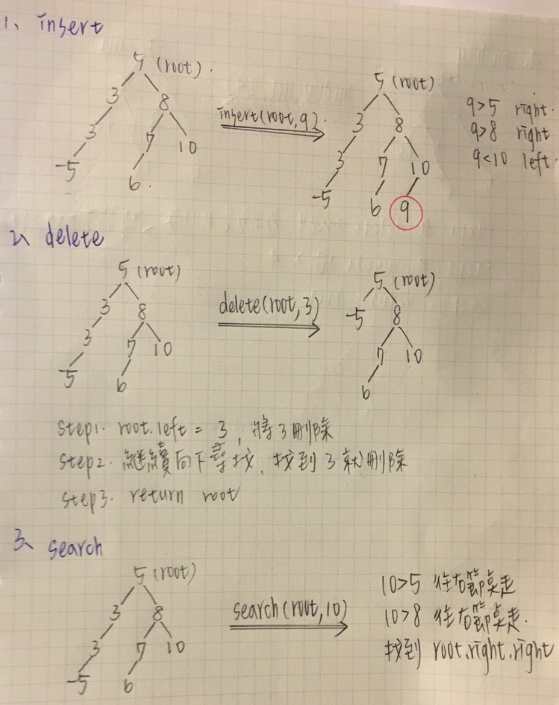 1、insert
5 (root).
3 8
3 7 10
-5 6.
insert(root,9).
5 (root)
3 8
3 7 10
-5 6 9
9>5 right.
9>8 right
9<10 left.
2、delete
5 (root)
3 8
3 7 10
-5 6
delete(root,3)
5 (root)
-5 8
7 10
6
step1. root.left = 3, 將3刪除
step2. 繼續向下尋找, 找到3就刪除
step3. return root
3、search
5 (root)
3 8
3 7 10
-5 6
search(root,10)
10>5 往右節点走
10>8 往右節点走.
找到 root.right.right